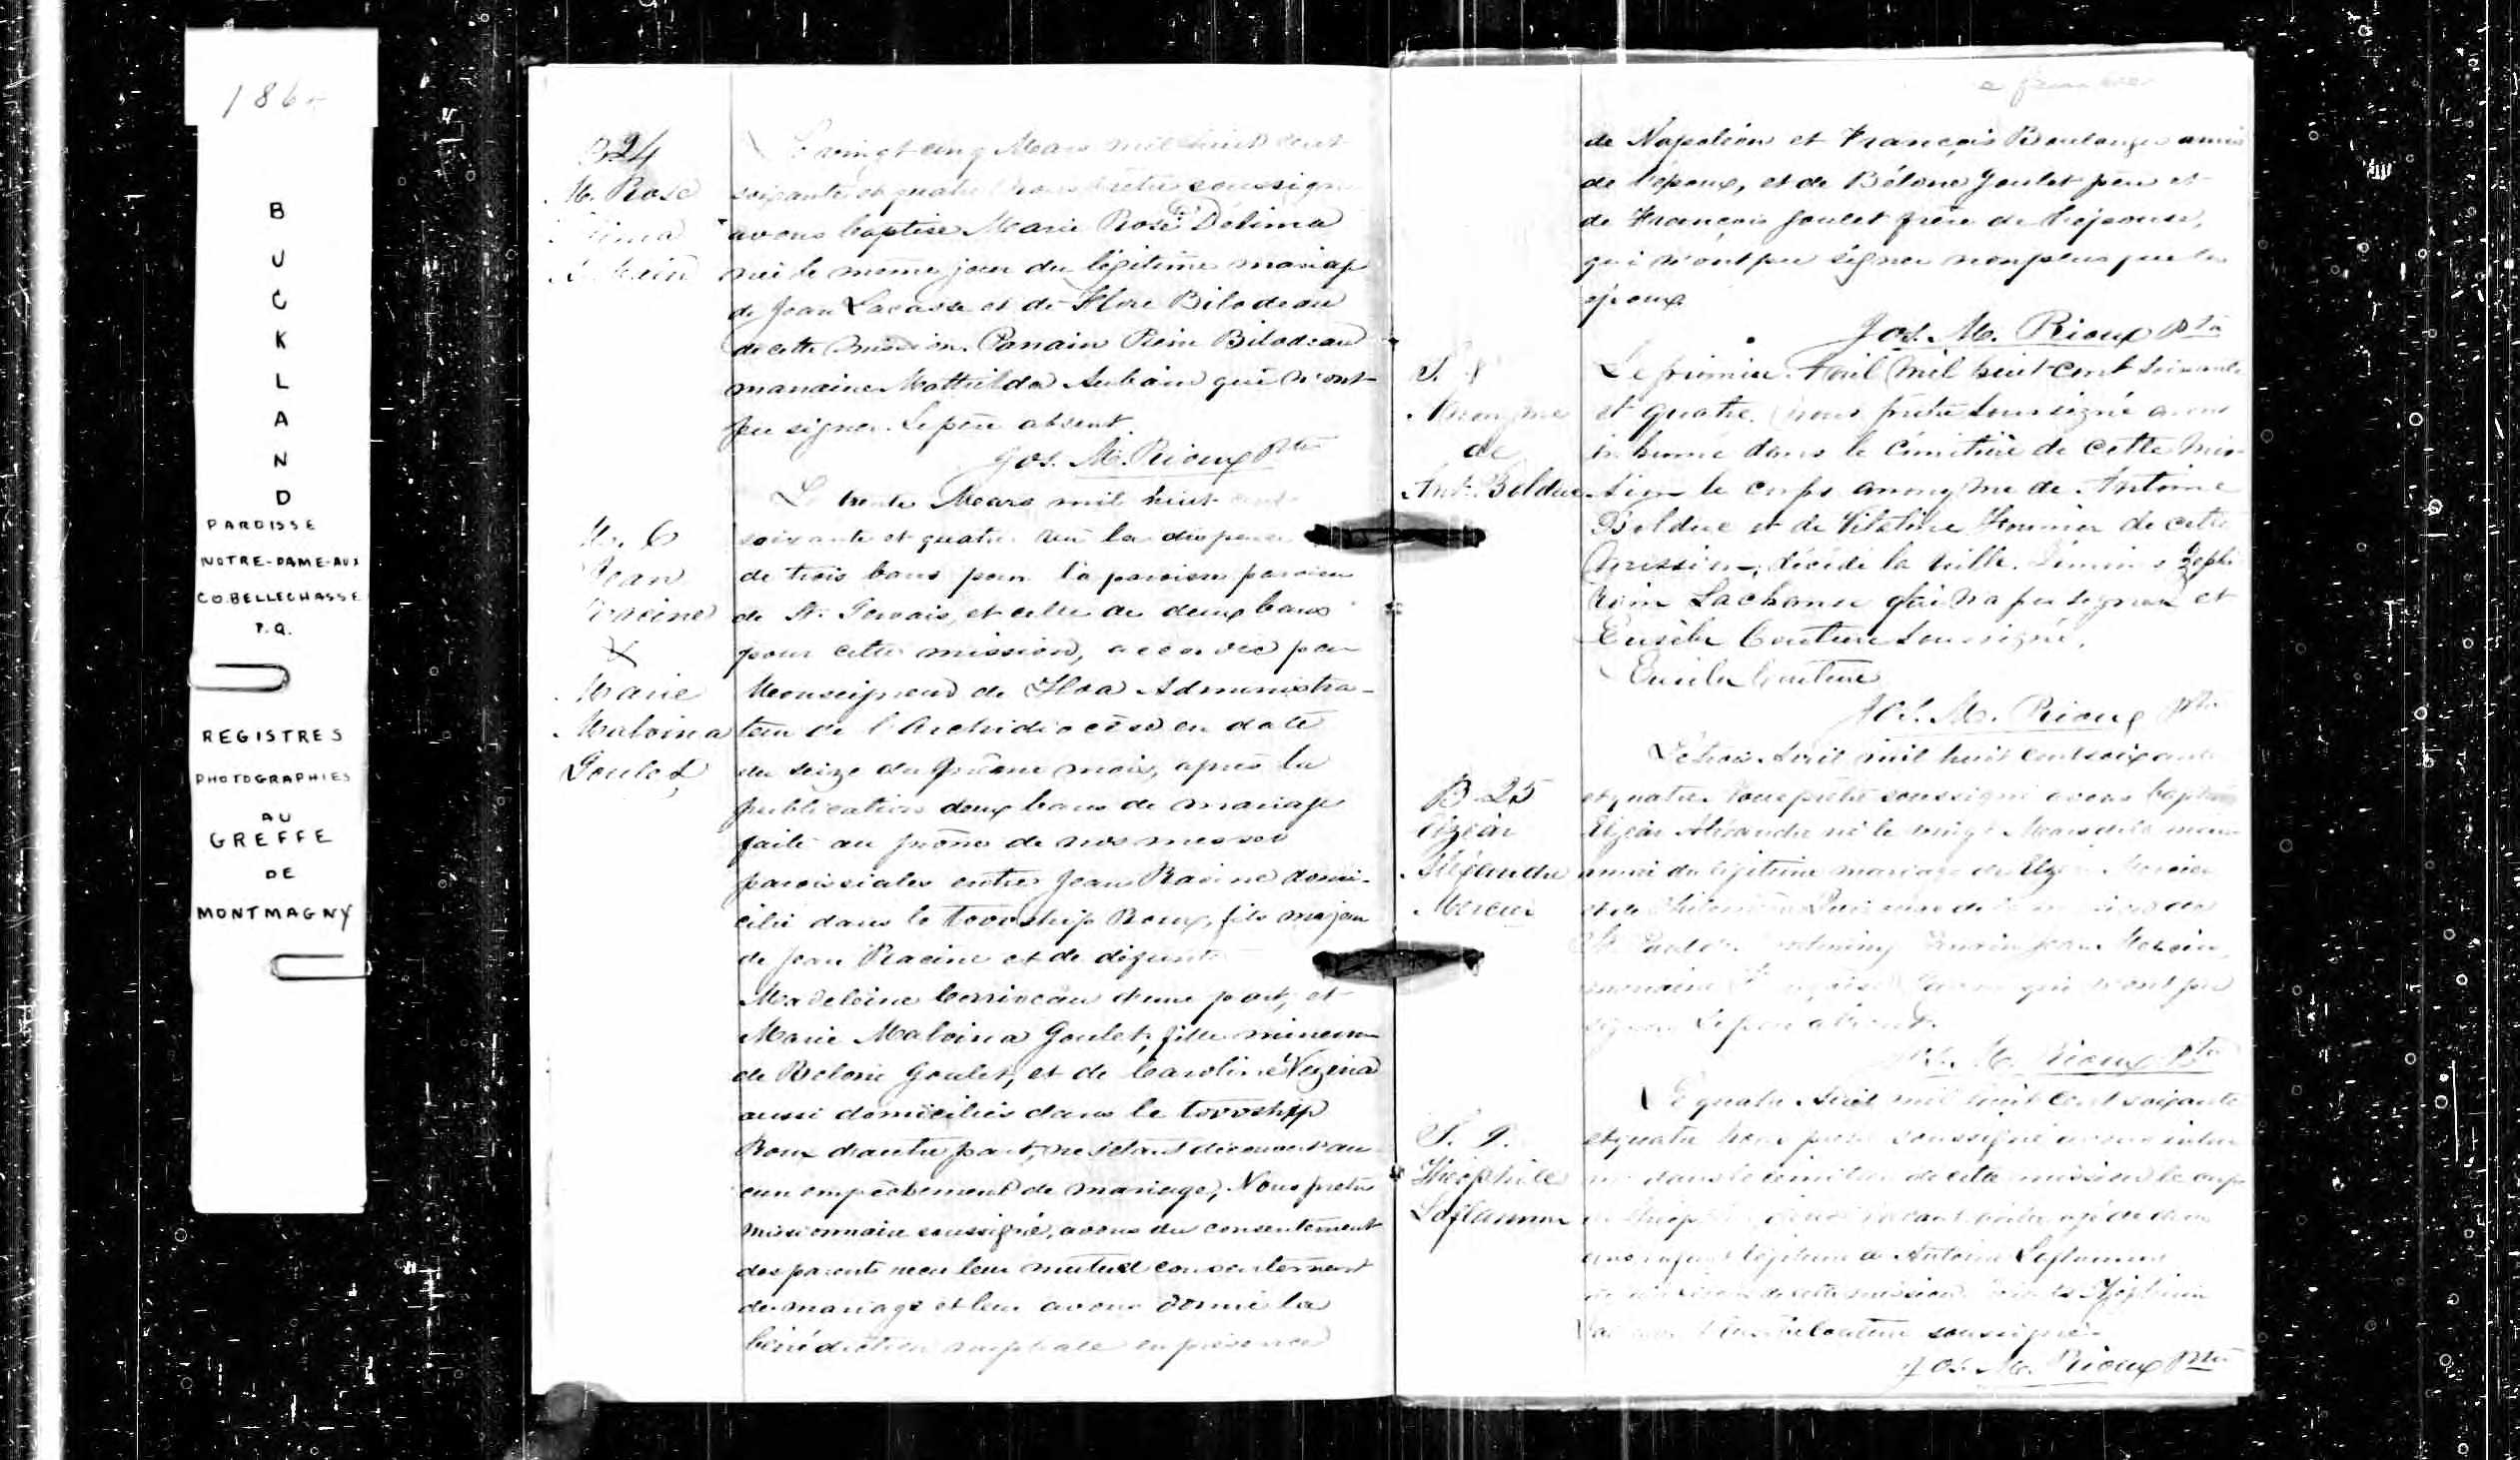 186
B
U
C
K
L
A
N
D
PAROISSE
NOTRE-DAME-AUX
CO. BELLECHASSE
P.Q.
REGISTRES
PHOTOGRAPHIES
AU
GREFFE
DE
MONTMAGNY
B 24
M. Rose
Le vingt cinq Mars mil huit cent
soixante et quatre Nous Prêtre soussigné
avons baptisé Marie Rose Délima
née le même jour du légitime mariage
de Jean Lacasse et de Flore Bilodeau
de cette mission. Parrain Pierre Bilodeau
marraine Mathilda Aubain qui n'ont
pu signer. Le père absent.
Jos. M. Rioux Ptre
M. 6
Jean
Racine
&
Marie
Malvina
Goulet
Le trente Mars mil huit cent
soixante et quatre vu la dispense
de trois bans pour la paroisse paroisse
de St. Gervais, et celle de deux bans
pour cette mission, accordée par
Monseigneur de Tloa Administra-
teur de l'Archidiocèse en date
du seize du présent mois, après la
publication deux bans de mariage
faite au prône de nos messes
paroissiales entre Jean Racine domi-
cilié dans le towoship Roux, fils majeur
de Jean Racine et de défunte
Madeleine Corriveau d'une part, et
Marie Malvina Goulet, fille mineure
de Belonie Goulet, et de Caroline Vezina
aussi domiciliés dans le towoship
Roux d'autre part, ne s'étant découvert au-
cun empêchement de mariage, Nous prêtre
missionnaire soussigné, avons du consentement
des parents reçu leur mutuel consentement
de mariage et leur avons donné la
bénédiction nuptiale en présence
de Napoléon et François Boulanger amis
de l'époux, et de Bélone Goulet père et
de François Goulet frère de l'épouse,
qui n'ont pu signer non plus que les
époux
Jos. M. Rioux Ptre
S. 8
Anonyme
de
Ant. Bolduc
Le premier Avril mil huit cent soixante
et quatre nous prêtre soussigné avons
inhumé dans le cimetière de cette mis-
sion le corps anonyme de Antoine
Bolduc et de Vitaline Fournier de cette
mission, décédé la veille. Témoins Zéphi
rin Lachance qui n'a pu signer et
Eusèbe Couture soussigné.
Eusèbe Couture
Jos. M. Rioux Ptre
B 25
Elzéar
Aléxandre
Mercier
Le trois Avril mil huit cent soixante
et quatre Nous prêtre soussigné avons baptisé
Elzéar Aléxandre né le vingt Mars de la même
année du légitime mariage de Elzéar Mercier
Parrain Jean Mercier
marraine qui n'ont pu
signer. Le père absent.
Jos. M. Rioux Ptre
S. 9.
Théophile
Laflamme
Le quatre Avril mil huit cent soixante
et quatre nous prêtre soussigné avons inhu
mé dans le cimetière de cette mission le corps
de Théophile
ans enfant légitime de Antoine Laflamme
de cette mission
Couture soussigné
Jos. M. Rioux Ptre